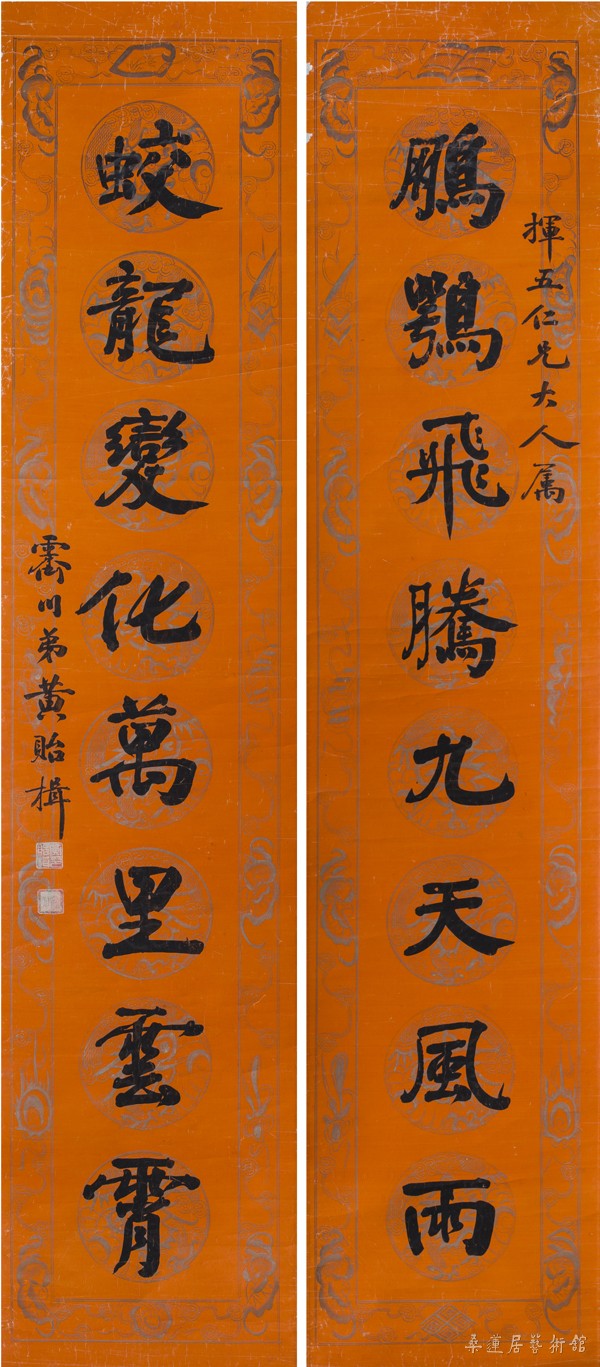 揮五仁兄大人属
鵬鶚飛騰九天風雨
蛟龍變化萬里雲霄
霽川弟黄貽楫
桑蓮居藝術館